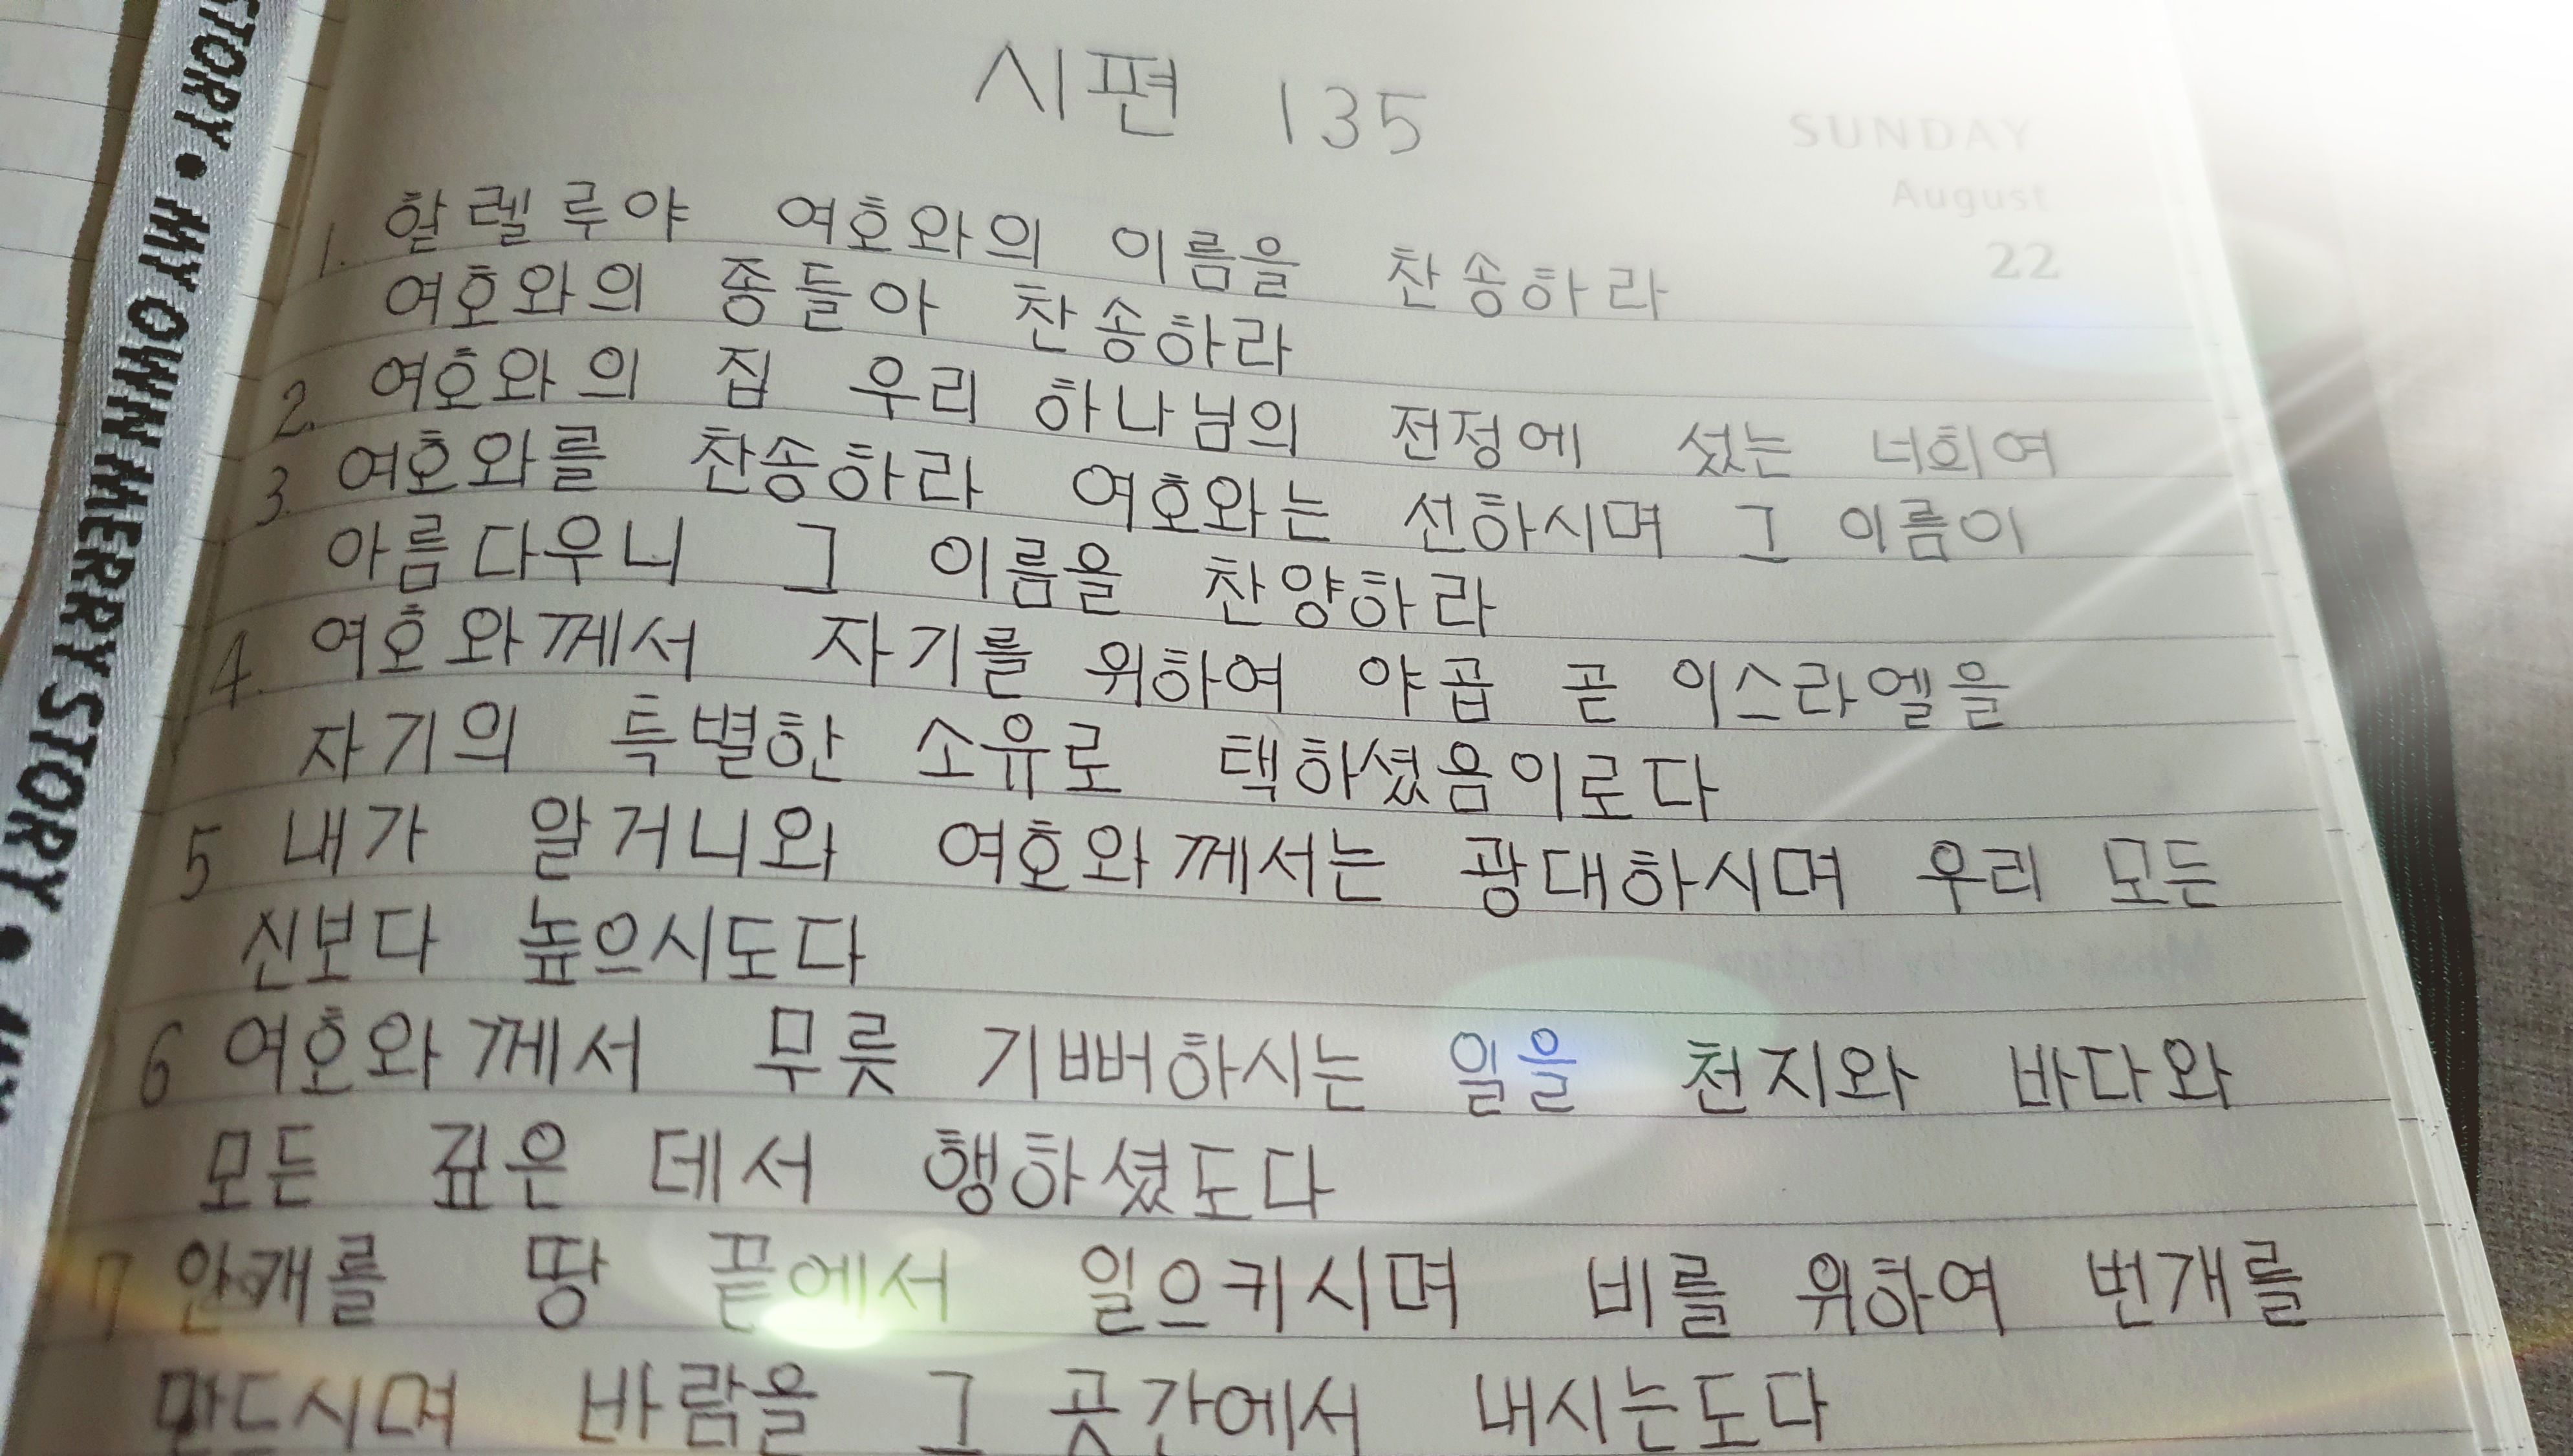 시편 135
SUNDAY
August
22
1. 할렐루야 여호와의 이름을 찬송하라
여호와의 종들아 찬송하라
2. 여호와의 집 우리 하나님의 전정에 섰는 너희여
3. 여호와를 찬송하라 여호와는 선하시며 그 이름이
아름다우니 그 이름을 찬양하라
4. 여호와께서 자기를 위하여 야곱 곧 이스라엘을
자기의 특별한 소유로 택하셨음이로다
5 내가 알거니와 여호와께서는 광대하시며 우리 모든
신보다 높으시도다
6 여호와께서 무릇 기뻐하시는 일을 천지와 바다와
모든 깊은 데서 행하셨도다
7 안개를 땅 끝에서 일으키시며 비를 위하여 번개를
만드시며 바람을 그 곳간에서 내시는도다
STORY • MY OWN MERRY STORY •